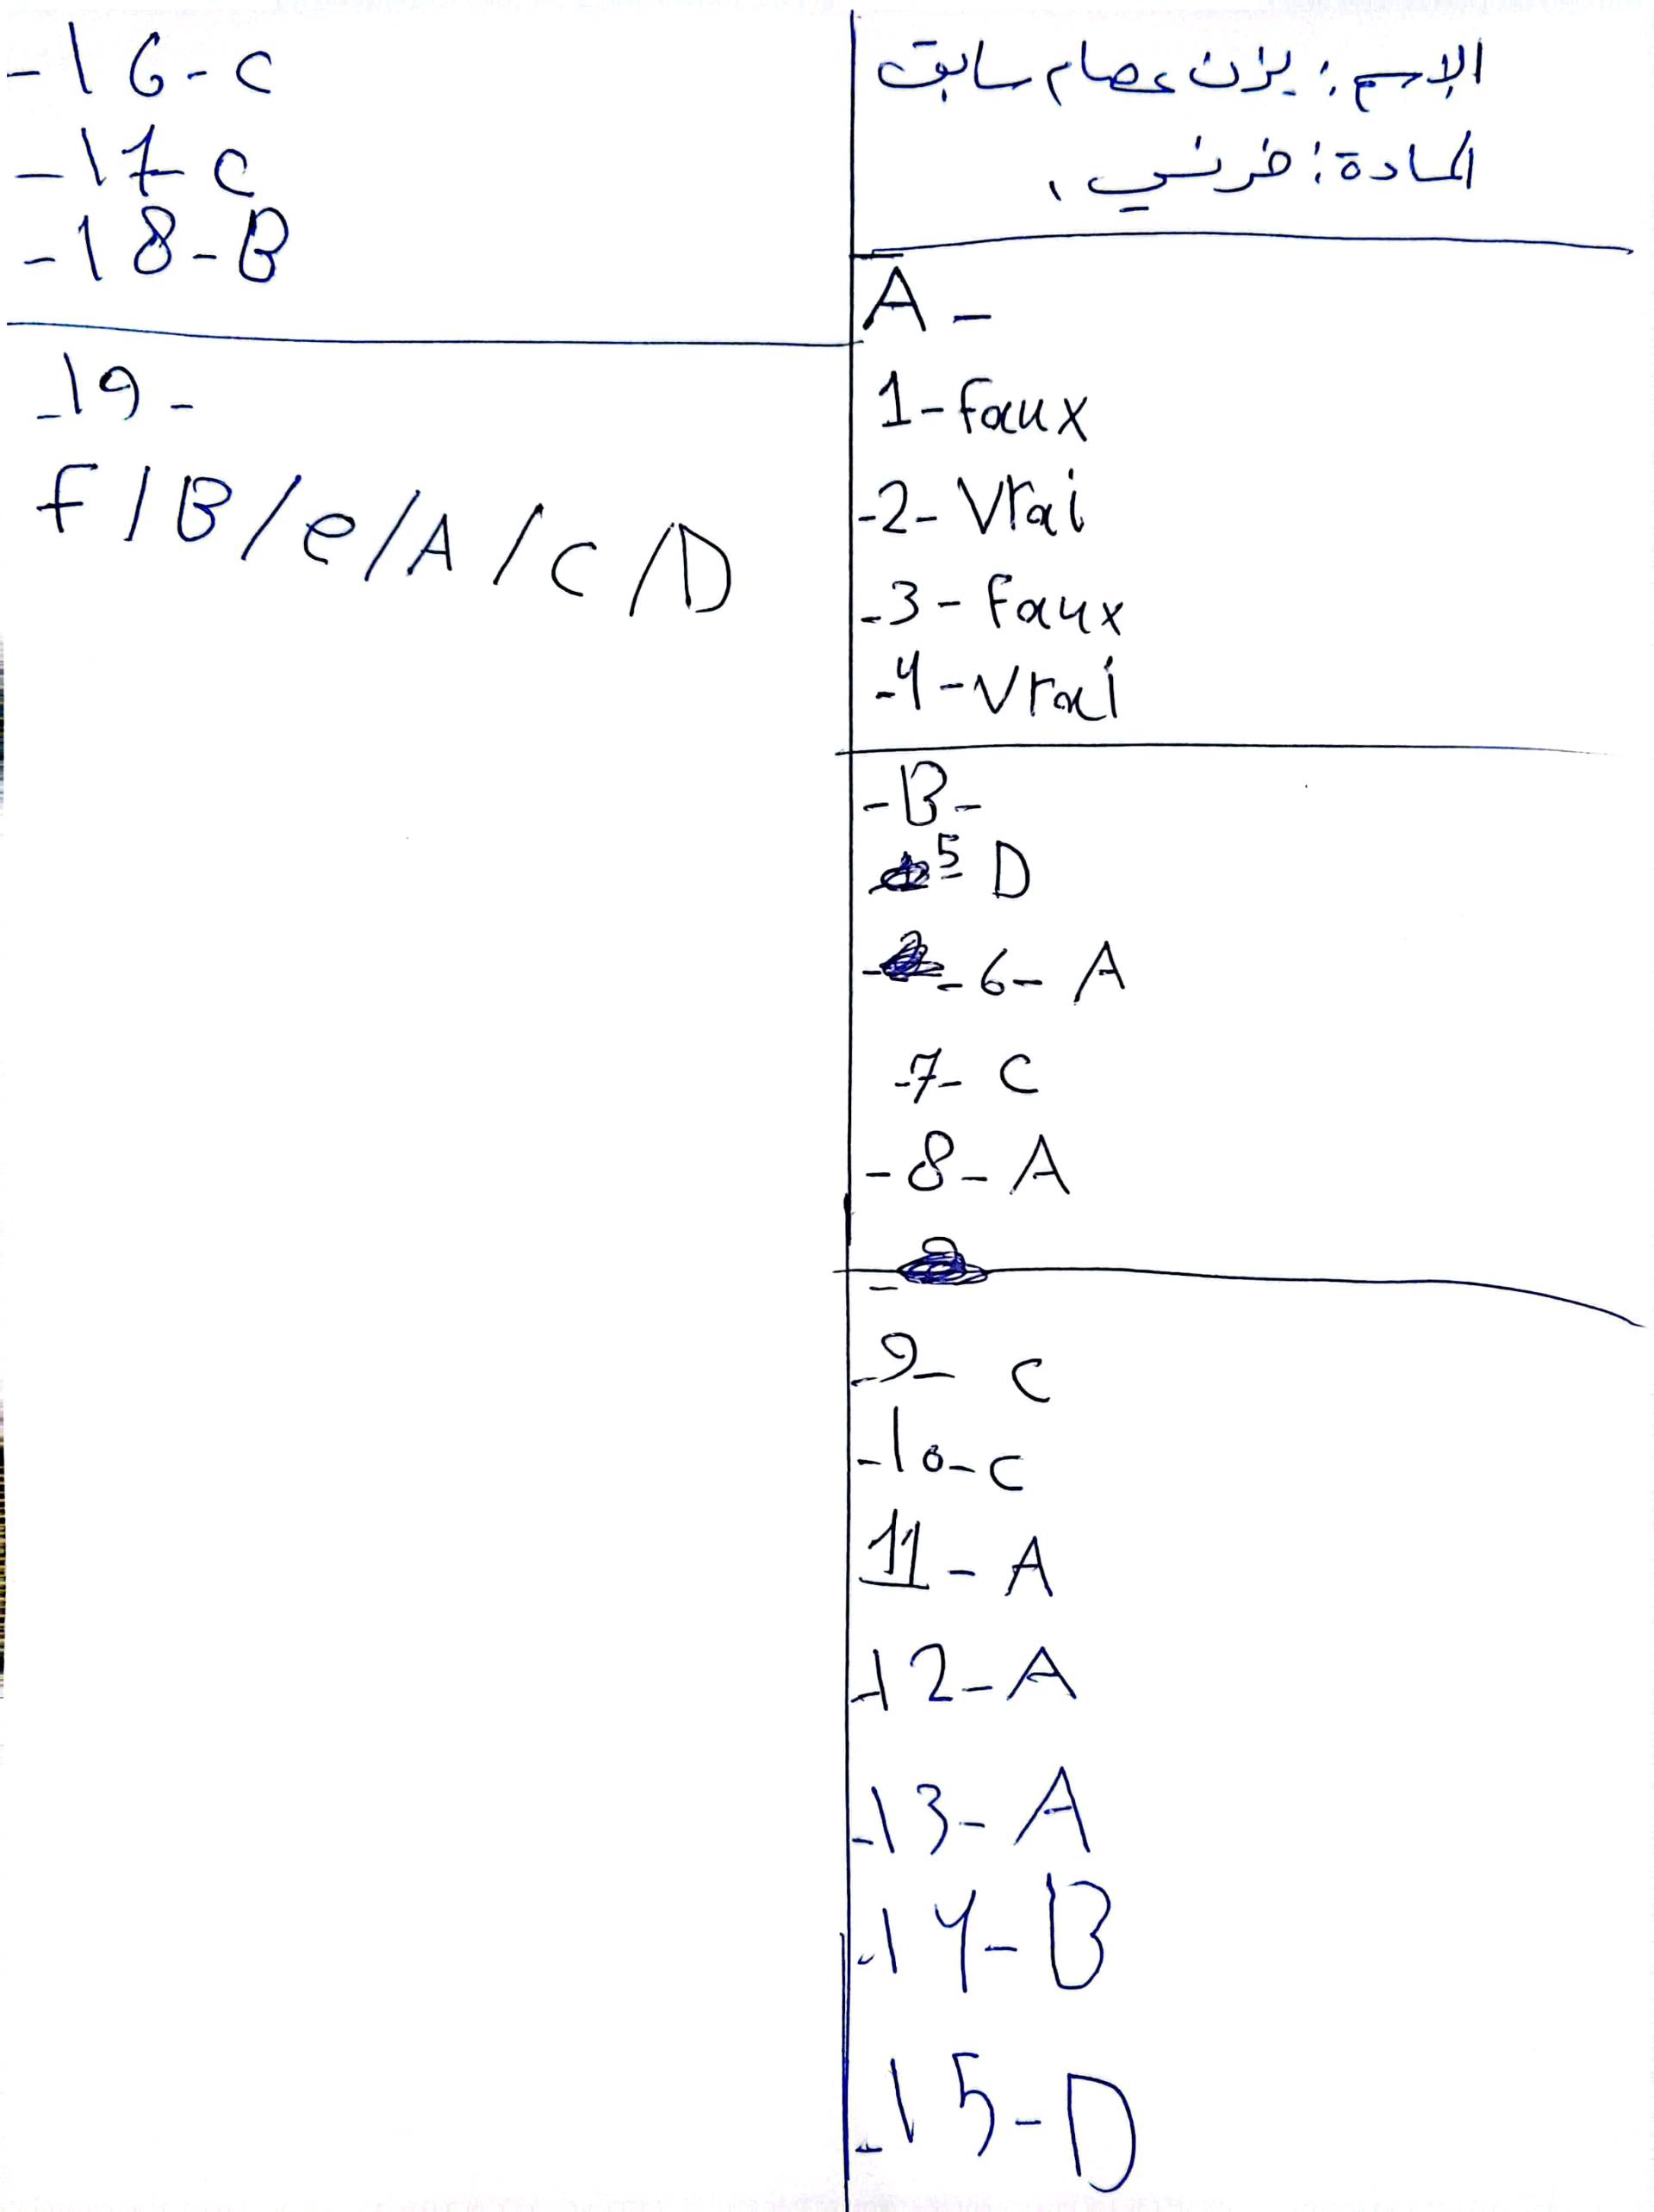 الإسم: يزن عصام سابق
المادة: فرنسي.
A -
1- Faux
-2- Vrai
-3- Faux
-4- Vrai
-B-
5 D
- - 6- A
-7- C
-8- A
-9- C
-10- C
11- A
-12- A
-13- A
-14- B
-15- D
-16- C
-17- C
-18- B
-19-
F/B/e/A/C/D